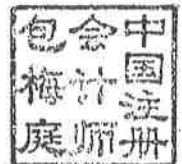 中国注册
会计师
包梅庭